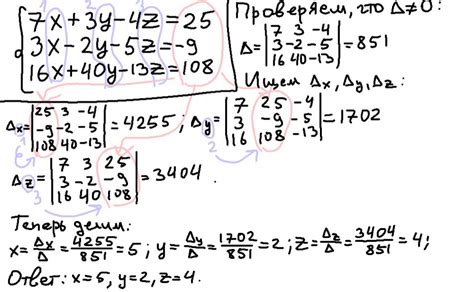 7x+3y-4z=25
3x-2y-5z=-9
16x+40y-13z=108
Проверяем, что Δ≠0:
Δ=|7 3 -4|
|3 -2 -5|=851
|16 40 -13|
Ищем Δx, Δy, Δz:
Δx=|25 3 -4|
|-9 -2 -5|=4255;
|108 40 -13|
Δy=|7 25 -4|
|3 -9 -5|=1702
|16 108 -13|
Δz=|7 3 25|
|3 -2 -9|=3404.
|16 40 108|
Теперь делим:
x=Δx/Δ=4255/851=5; y=Δy/Δ=1702/851=2; z=Δz/Δ=3404/851=4;
Ответ: x=5, y=2, z=4.